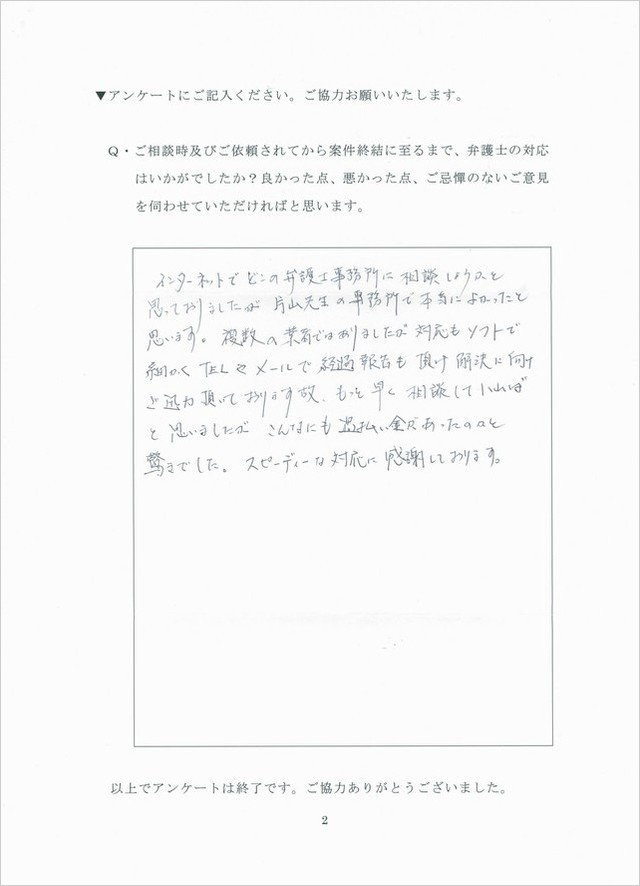 ▼アンケートにご記入ください。ご協力お願いいたします。
Q・ご相談時及びご依頼されてから案件終結に至るまで、弁護士の対応
はいかがでしたか？良かった点、悪かった点、ご忌憚のないご意見
を伺わせていただければと思います。
インターネットでどこの弁護士事務所に相談しようかと
思っておりましたが片山先生の事務所で本当によかったと
思います。複数の業者ではありましたが対応もソフトで
細かくTELやメールで経過報告も頂け解決に向け
ご迅力頂いております故、もっと早く相談していれば
と思いましたがこんなにも過払い金があったのかと
驚きでした。スピーディーな対応に感謝しております。
以上でアンケートは終了です。ご協力ありがとうございました。
2